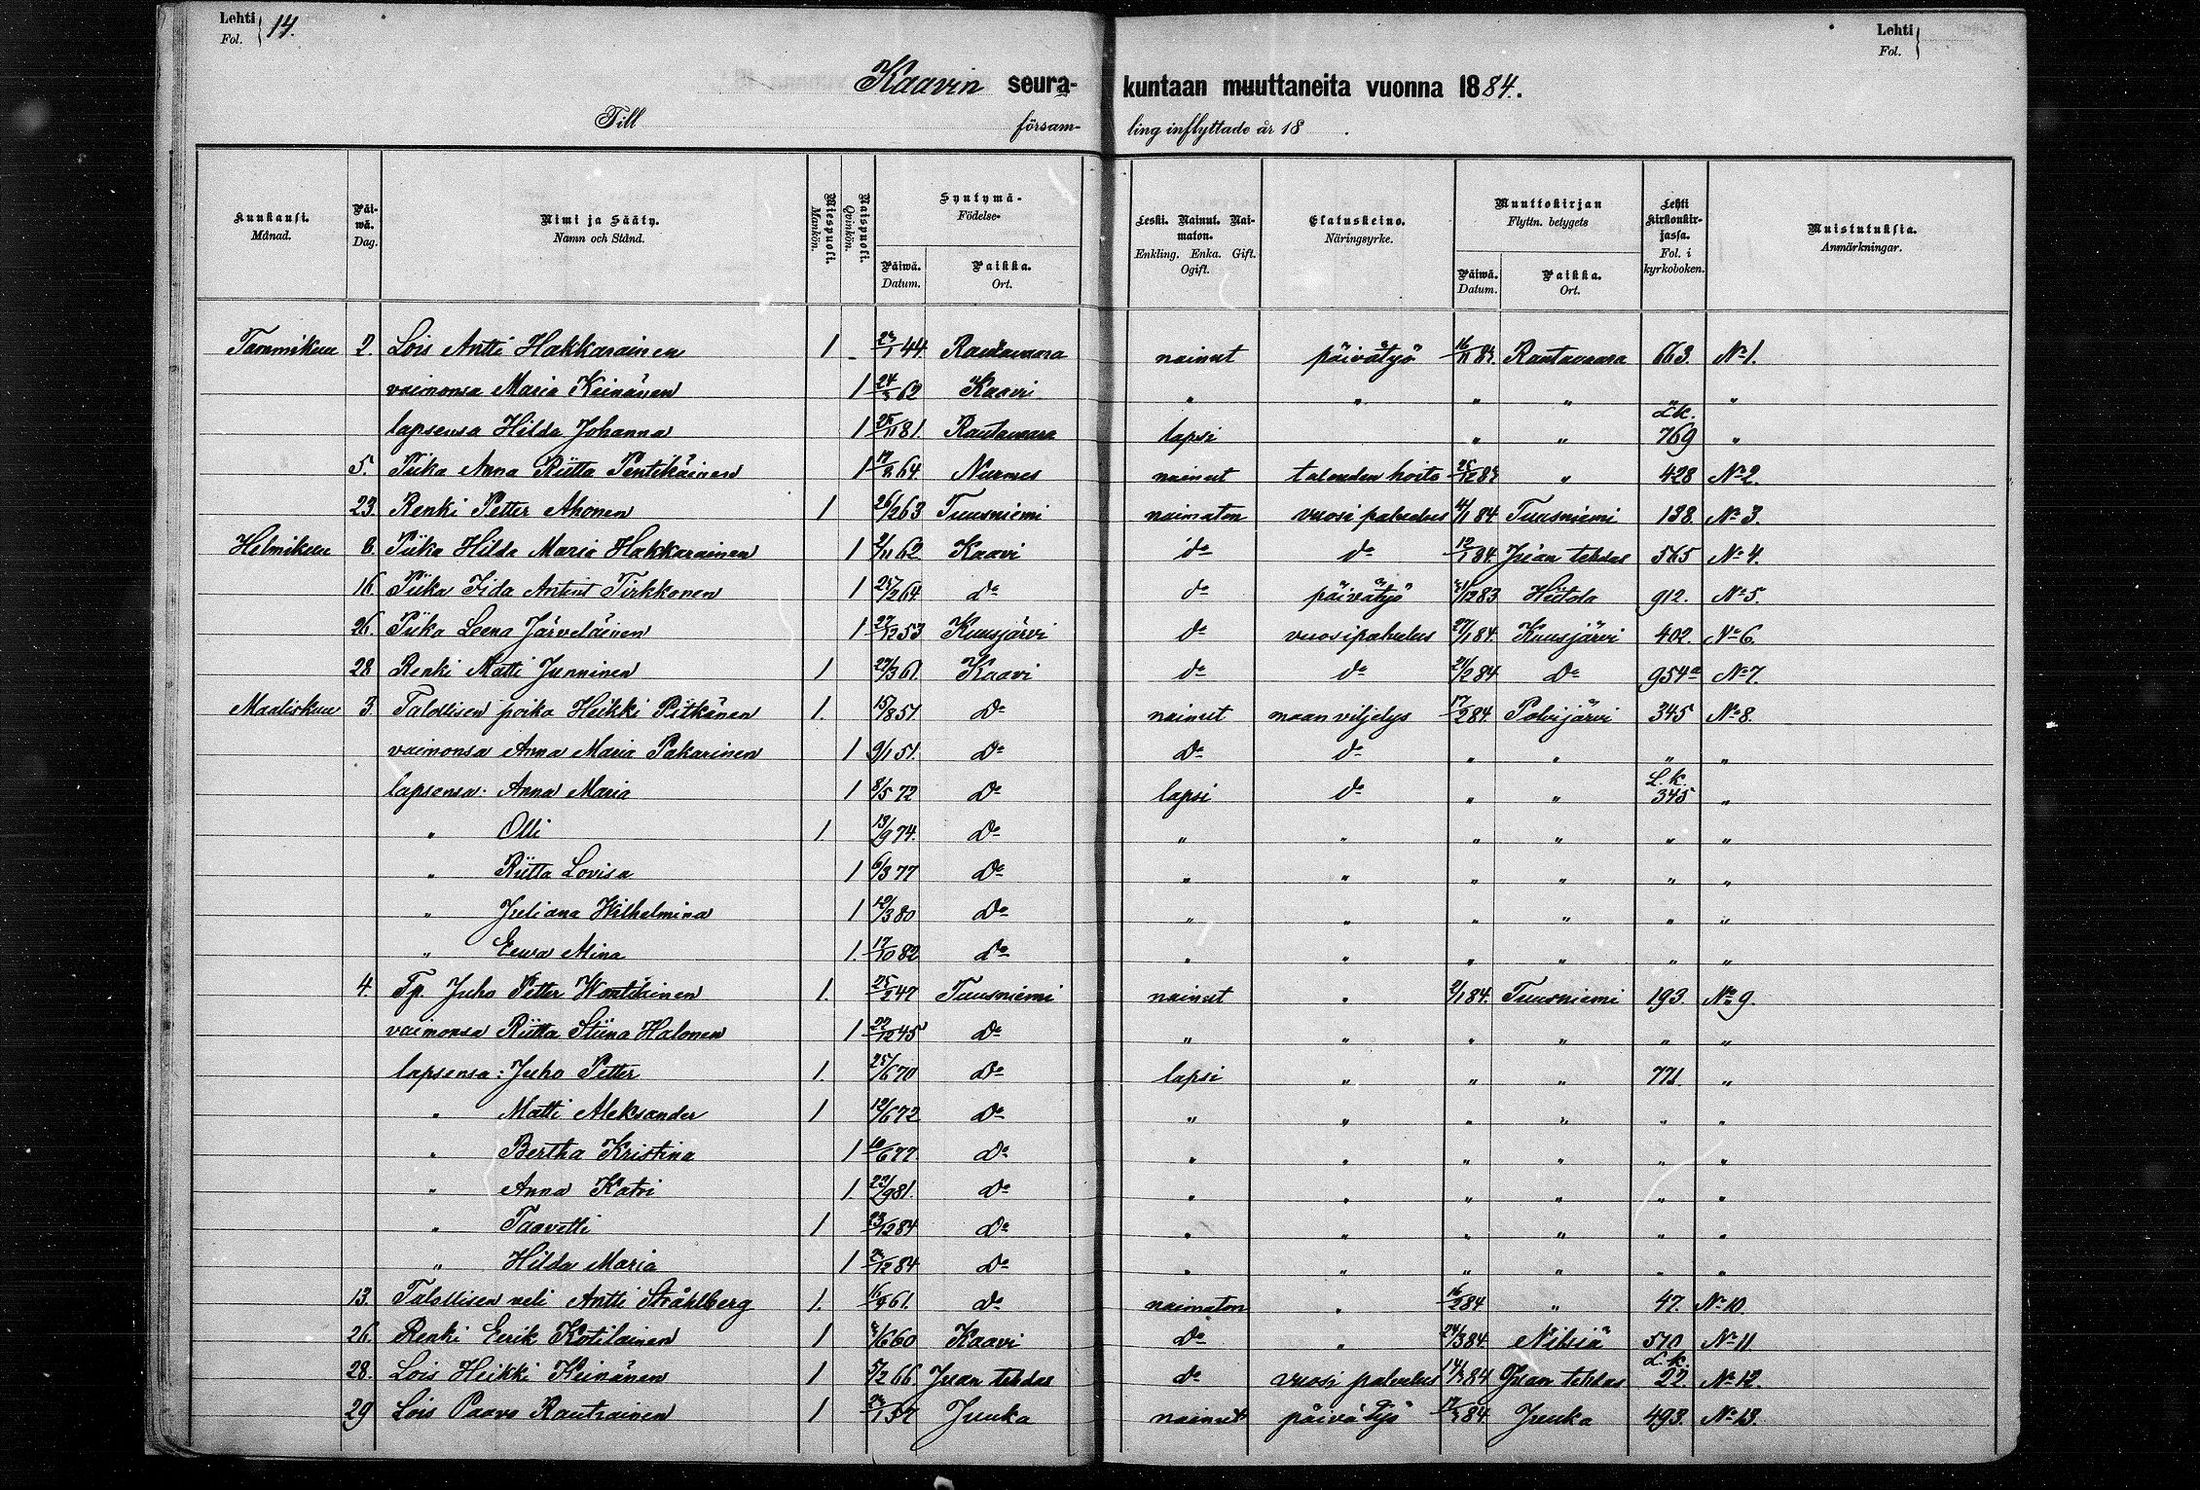 Lehti Fol. 14.
Lehti Fol.
Kaavin seurakuntaan muuttaneita vuonna 1884.
Till församling inflyttade år 18 .
Kuukausi. Månad. | Päiwä. Dag. | Nimi ja Sääty. Namn och Stånd. | Miespuoli. Mankön. | Waispuoli. Qvinkön. | Syntymä- Födelse- Päiwä. Datum. | Paikka. Ort. | Leski. Nainut. Naimaton. Enkling. Enka. Gift. Ogift. | Elatuskeino. Näringsyrke. | Muuttokirjan Flyttn. betygets Päiwä. Datum. | Paikka. Ort. | Lehti kirkonkirjassa. Fol. i kyrkoboken. | Muistutuksia. Anmärkningar.
Tammikuu 2. Lois Antti Hakkarainen 1 - 44 Rautavaara nainut päivätyö Rautavaara 663. No 1.
vaimonsa Maria Keinänen 1 62 Kaavi " " " " " "
lapsensa Hilda Johanna 1 25/11 81. Rautavaara lapsi " " Lk. 769 "
5. Piika Anna Riitta Pentikäinen 1 64. Nurmes nainut talouden hoito " 428 No 2.
23. Renki Petter Ahonen 1 26/2 63 Tuusniemi naimaton vuosipalvelus 84 Tuusniemi 138. No 3.
Helmikuu 6. Piika Hilda Maria Hakkarainen 1 2/11 62 Kaavi do do 12/1 84. Juan tehdas 565 No 4.
16. Piika Iida Tirkkonen 1 25/2 64 do do päivätyö 12 83 Hiitola 912. No 5.
26. Piika Leena Järveläinen 1 27/12 53 Kuusjärvi do vuosipalvelus 27/1 84. Kuusjärvi 402. No 6.
28 Renki Matti Junninen 1 27/3 61. Kaavi do do 21/2 84 Do 954a No 7.
Maaliskuu 3. Talollisen poika Heikki Pitkänen 1. 15/8 51 Do nainut maanviljelys 17/2 84. Polvijärvi 345 No 8.
vaimonsa Anna Maria Pakarinen 1 9/1 51. Do Do do " " " "
lapsensa: Anna Maria 1 8/5 72 Do lapsi do " " L.k. 345 "
" Olli 1. 13/9 74. Do " " " " " "
" Riitta Lovisa 1 6/3 77 Do " " " " " "
" Juliana Wilhelmina 1 12/3 80 Do " " " " " "
" Eeva Miina 1. 17/10 82 do " " " " " "
4. Tp. Juho Petter Wontilainen 1. 25/2 47 Tuusniemi nainut " 2/1 84. Tuusniemi 193. No 9.
vaimonsa Riitta Stiina Halonen 1 22/12 45 Do " " " " " "
lapsensa: Juho Petter 1. 25/6 70 Do lapsi " " " 771. "
" Matti Aleksander 1 12/6 72 Do " " " " " "
" Bertha Kristina 1 10/6 77 Do " " " " " "
" Anna Katri 1 22/9 81. Do " " " " " "
" Taavetti 1 23/12 84 Do " " " " " "
" Hilda Maria 1 12 84 Do " " " " " "
13. Talollisen veli Antti Stråhlberg 1. 61. do naimaton " 16/2 84 " 47. No 10.
26. Renki Eerik Kotilainen 1 6 60 Kaavi Do " 24/3 84 Nilsiä 570 No 11.
28. Lois Heikki Keinänen 1 5/2 66. Juan tehdas do vuosipalvelus 84 Juan tehdas L.k. 22. No 12.
29 Lois Paavo Rautiainen 1 37 Juuka nainut päivätyö 84 Juuka 493. No 13.